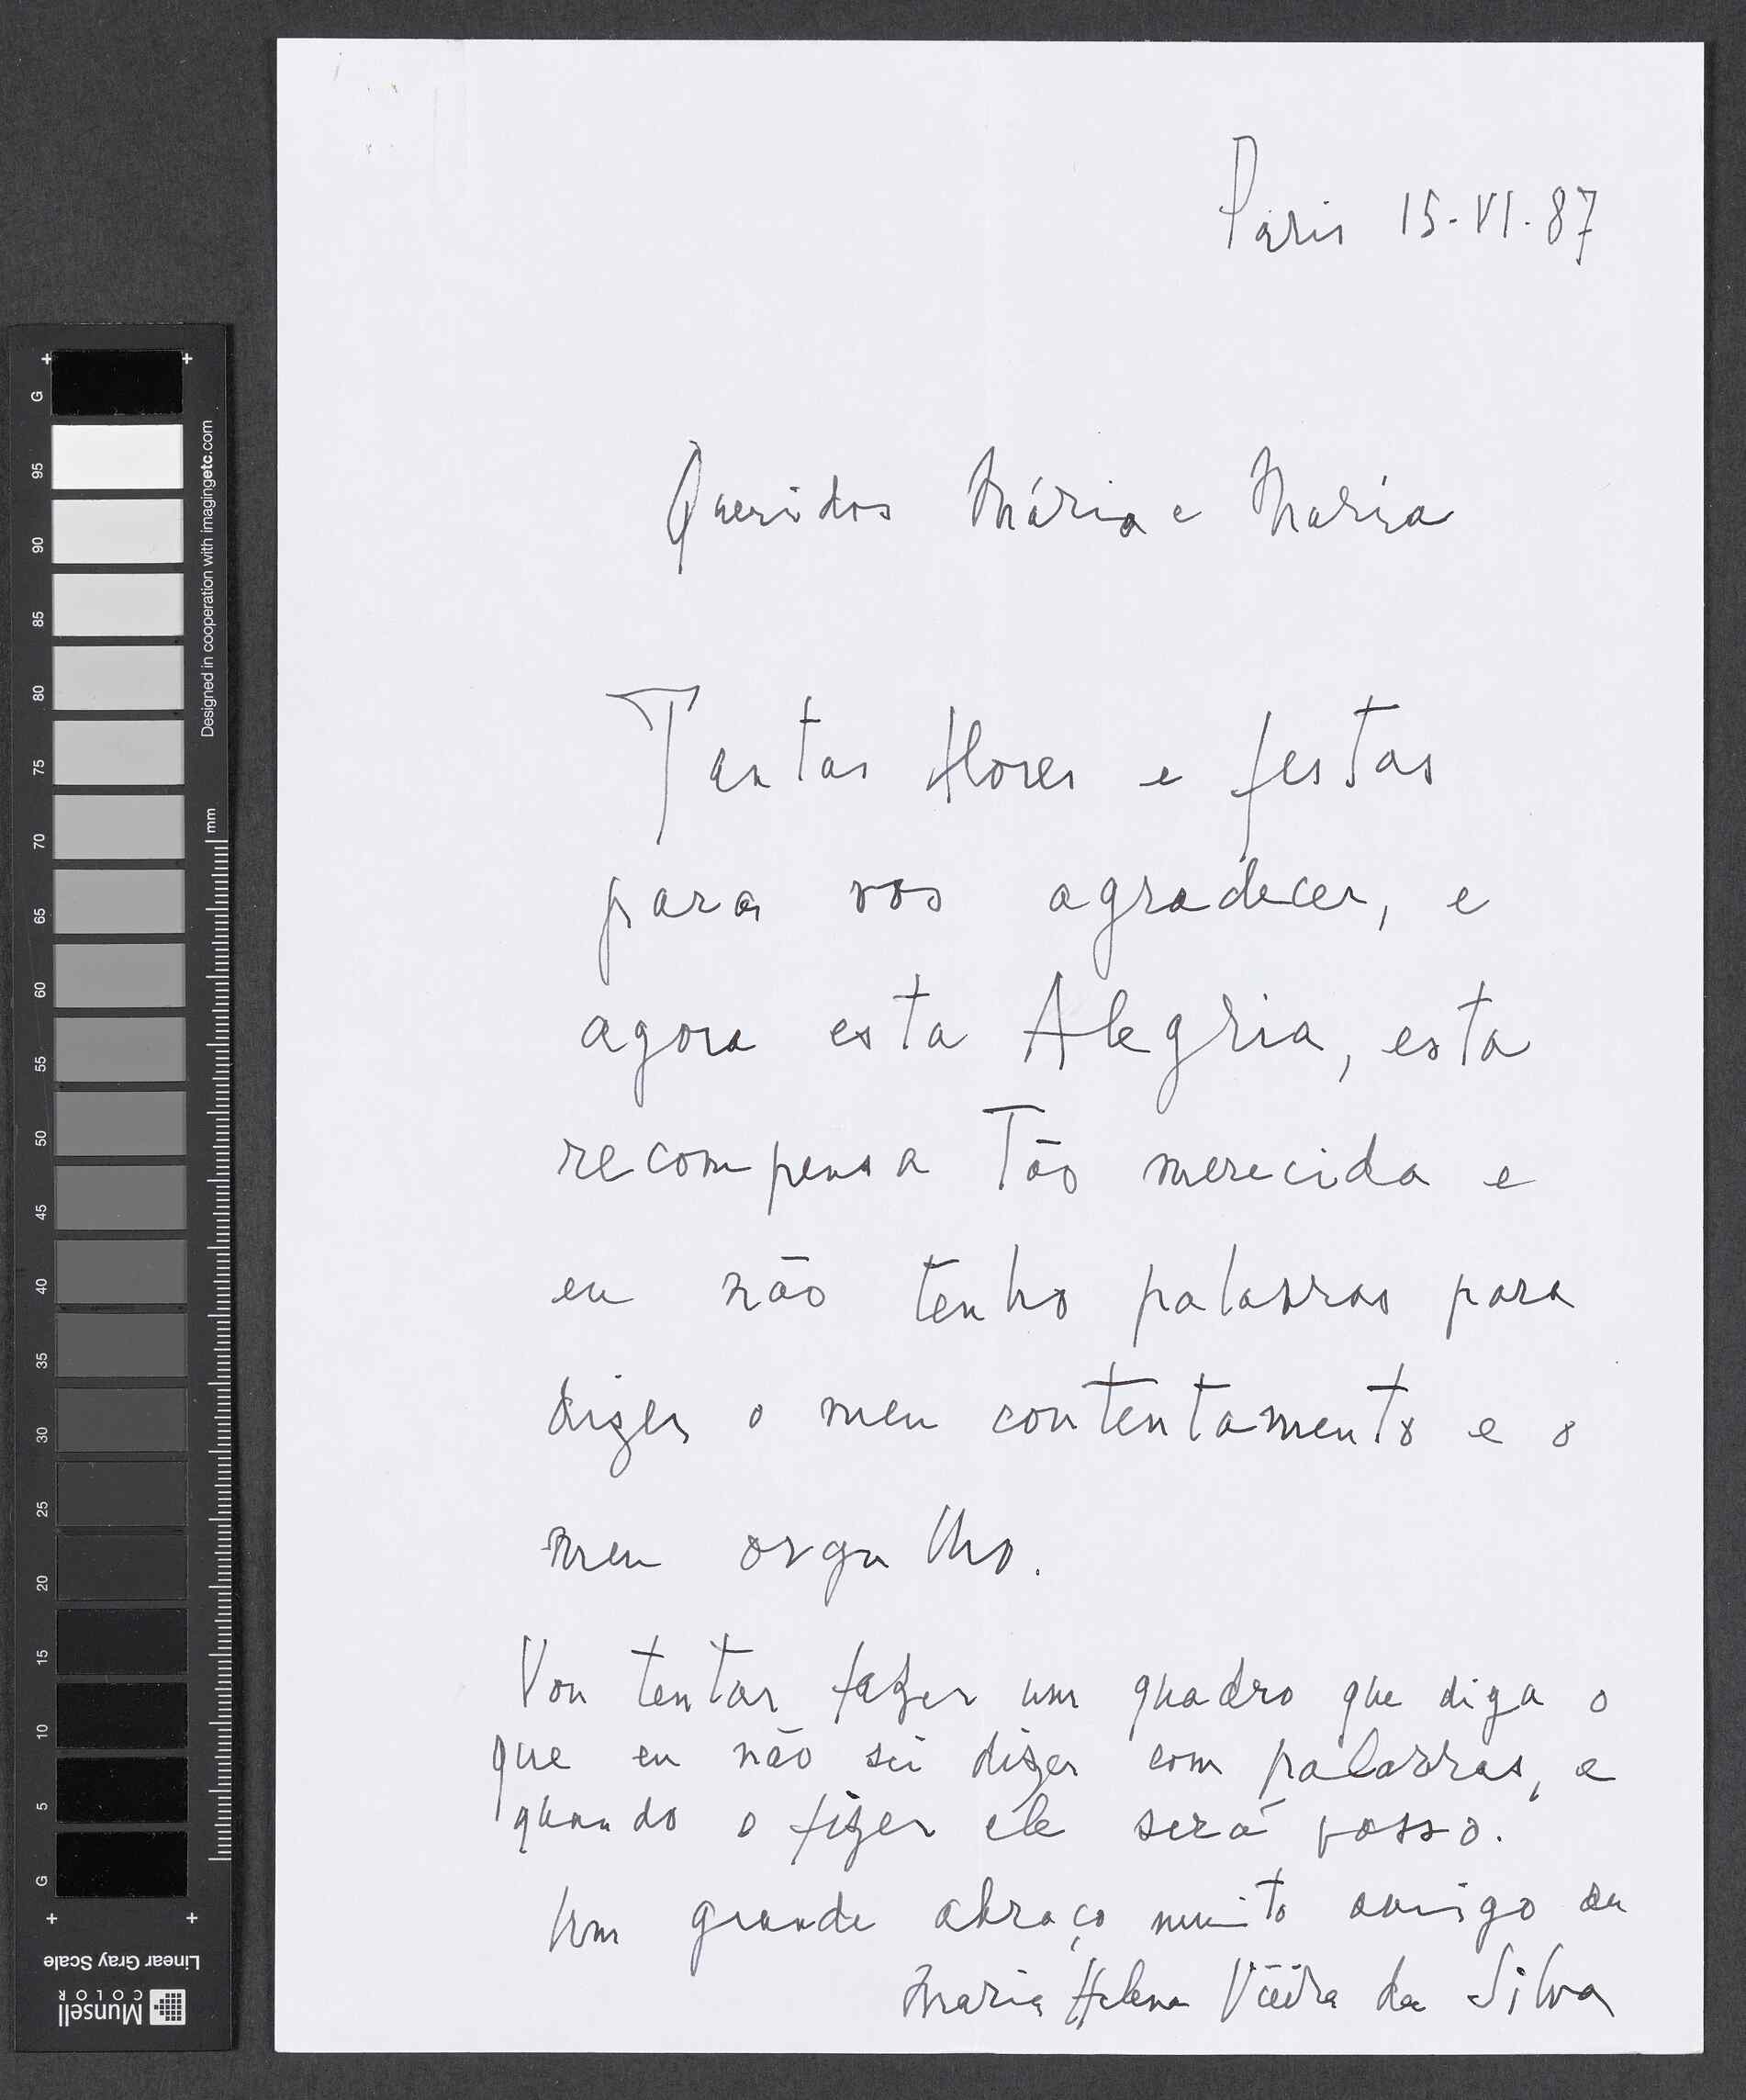 Paris 15-VI-87
Queridos Mário e Maria
Tantas flores e festas
para vos agradecer, e
agora esta Alegria, esta
recompensa tão merecida e
eu não tenho palavras para
dizer o meu contentamento e o
meu orgulho.
Vou tentar fazer um quadro que diga o
que eu não sei dizer com palavras, e
quando o fizer ele será vosso.
Um grande abraço muito amigo da
Maria Helena Vieira da Silva
G
95
90
85
80
75
70
65
60
55
50
45
40
35
30
25
20
15
10
5
G
Designed in cooperation with imagingetc.com
mm
Linear Gray Scale
Munsell
COLOR